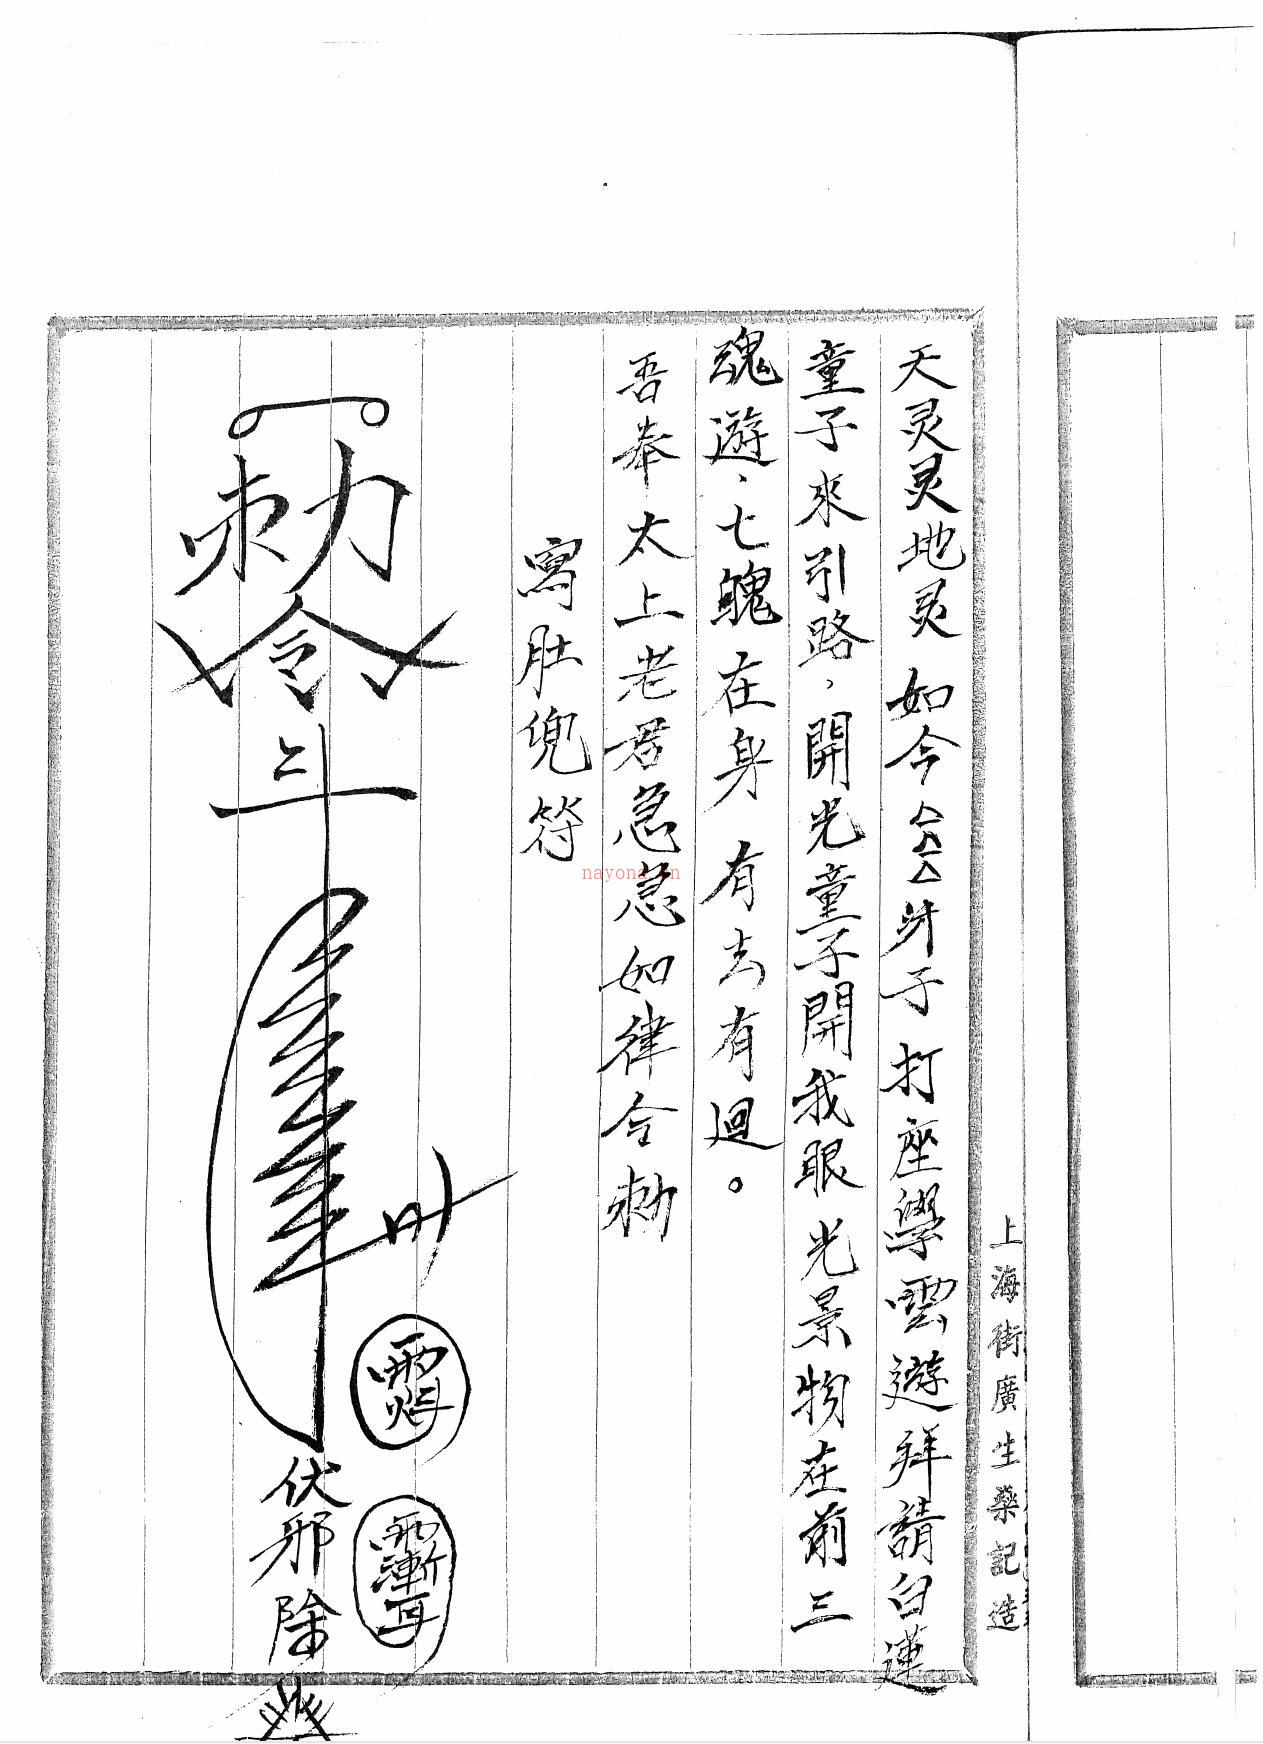 天灵灵地灵灵如今厶厶弟子打座學雲遊拜請白蓮
童子來引路，開光童子開我眼光景物在前三
魂遊、七魄在身有去有迴。
吾奉太上老君急急如律令勅
寫肚兜符
勅令
斗
伏邪除
上海街廣生藥記造
nayona.cn